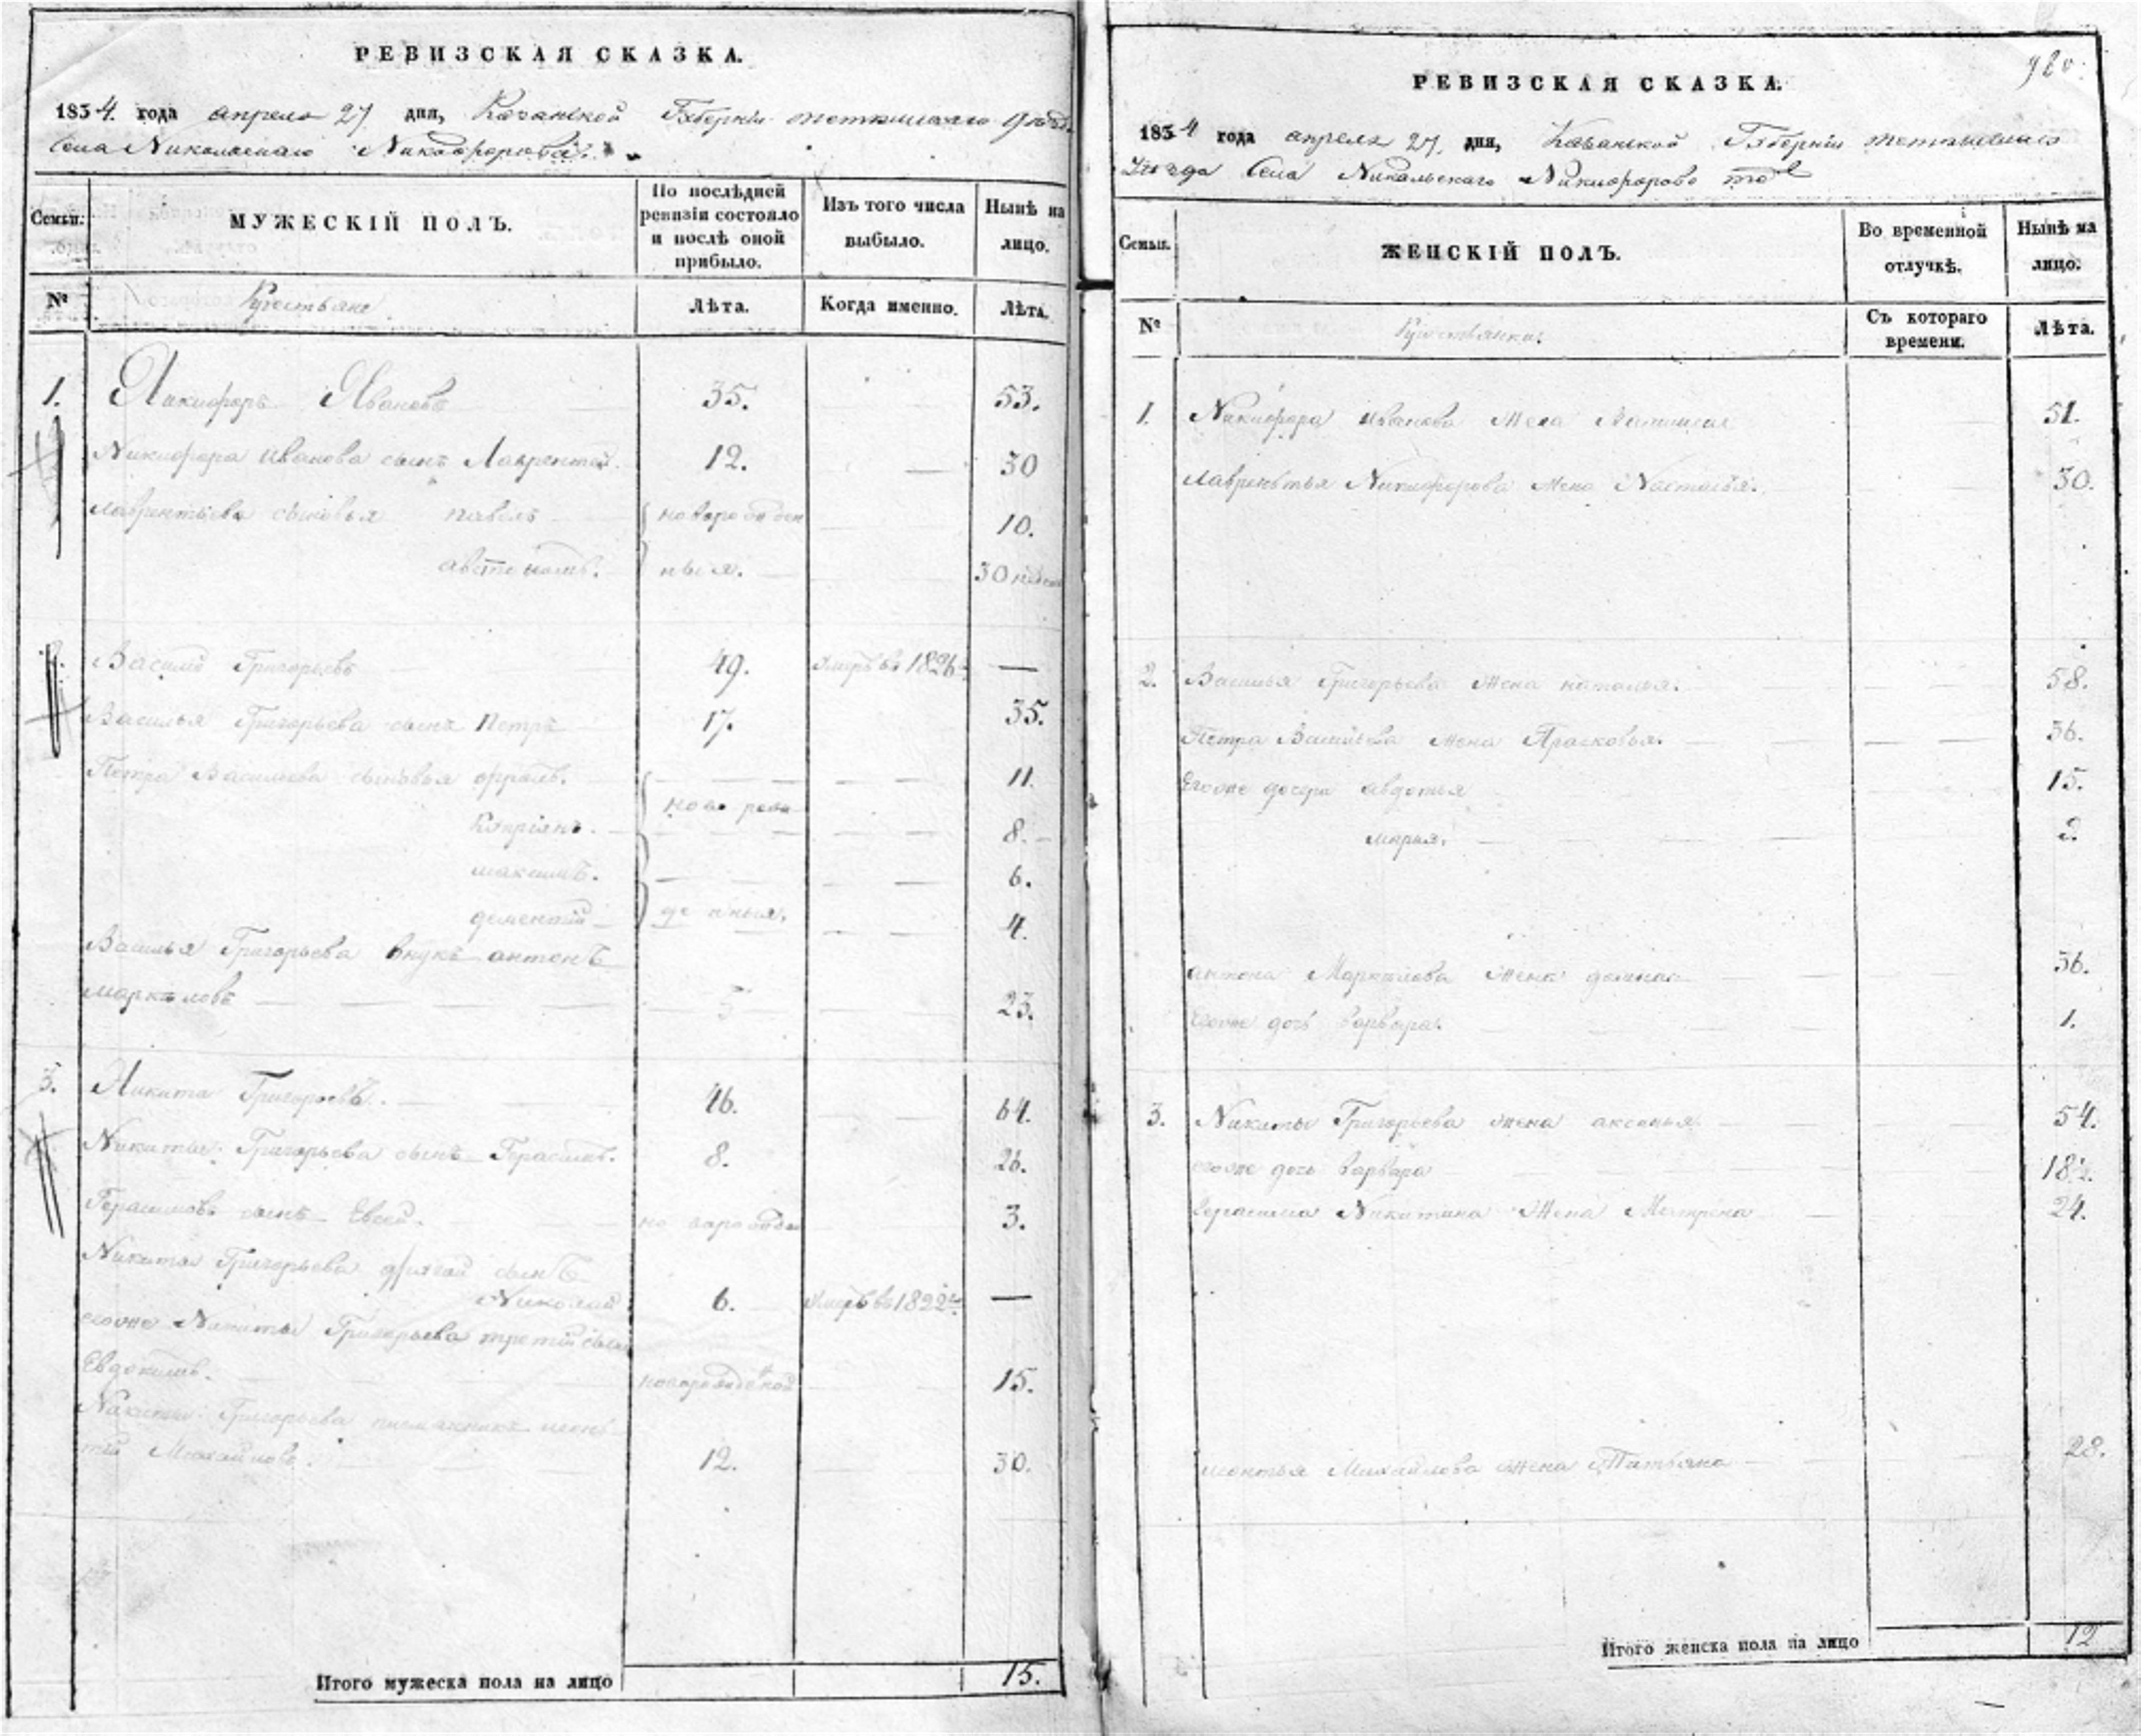 РЕВИЗСКАЯ СКАЗКА.
1834 года апреля 27 дня, Казанской Губернии тетюшскаго
Села Никольскаго Никифорова.
Семьи. МУЖЕСКІЙ ПОЛЪ. По послѣдней ревизіи состояло и послѣ оной прибыло. Изъ того числа выбыло. Нынѣ на лицо.
№ Крестьяне Лѣта. Когда именно. Лѣта.
1. Никифоръ Ивановъ 35. 53.
Никифора Иванова сынъ Лаврентей. 12. 30
Лаврентьева сыновья павелъ новорожден 10.
автономъ. ныя. 30 недель
Василей Григорьевъ 49. умеръ въ 1826 —
Василья Григорьева сынъ Петръ 17. 35.
Петра Васильева сыновья фролъ. 11.
ново рож
Кипріянъ. 8.
максимъ. 6.
дементій денныя. 4.
Василья Григорьева внукъ антонъ
маркѣловъ 5 23.
3. Никита Григорьевъ. 46. 64.
Никиты Григорьева сынъ Герасимъ. 8. 26.
Герасимовъ сынъ Евсей. 3.
Никиты Григорьева другой сынъ
Николай 6. умеръ въ 1822 —
егоже Никиты Григорьева третій сынъ
Евдокимъ. новорожденной 15.
Никиты Григорьева племянникъ леон
тій Михайловъ. 12. 30.
Итого мужеска пола на лицо 15.
РЕВИЗСКАЯ СКАЗКА.
1834 года апреля 27 дня, Казанской Губерніи тетюшскаго
Уезда Села Никольскаго Никифорово тоже
Семьи. ЖЕНСКІЙ ПОЛЪ. Во временной отлучкѣ. Нынѣ на лицо.
№ Крестьянки. Съ котораго времени. Лѣта.
1. Никифора иванова жена 51.
Лаврентья Никифорова жена Настасья. 30.
2. Василья Григорьева жена наталья. 58.
Петра Васильева жена Прасковья. 36.
Егоже дочери авдотья 15.
марья. 2.
антона Маркѣлова жена домна 36.
Егоже дочь варвара. 1.
3. Никиты Григорьева жена аксинья 54.
егоже дочь варвара 18½.
Герасима Никитина жена Матрена 24.
леонтья Михайлова жена Татьяна 28.
Итого женска пола на лицо 12